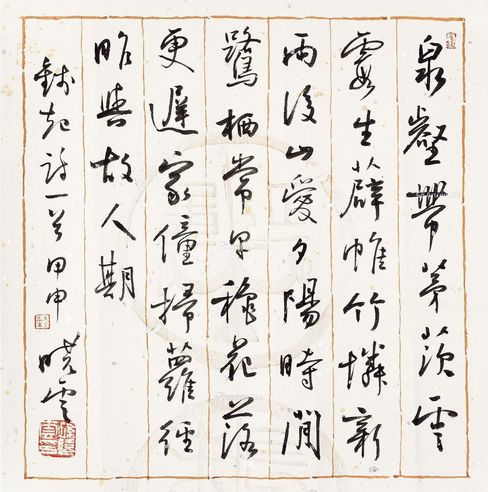 泉壑帶茅茨雲
霞生薜帷竹憐新
雨後山愛夕陽時閒
鷺栖常早穐花落
更遲家僮掃蘿徑
昨與故人期
錢起詩一首甲申
曉雲